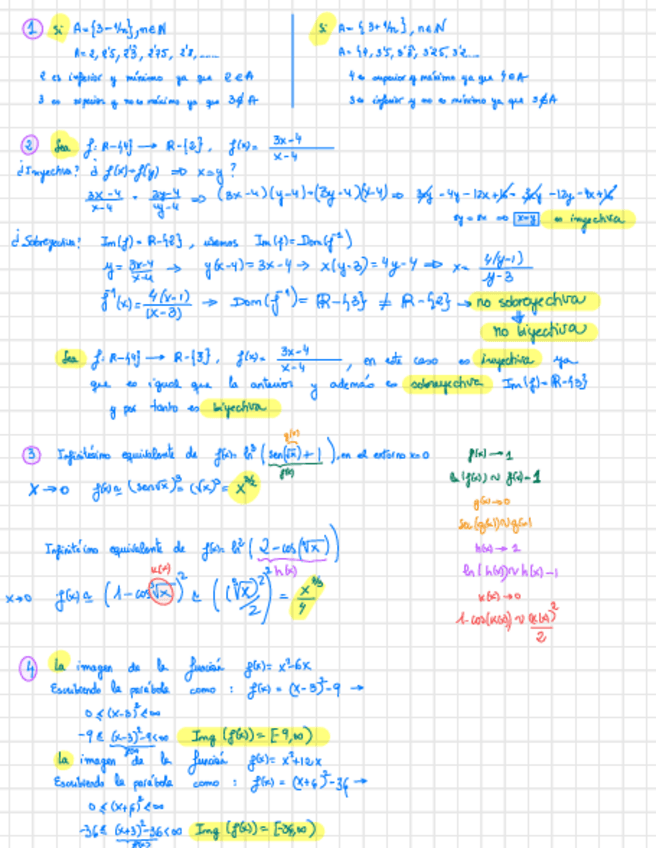 1 Si A={3-1/n}, n∈N
A=2, 2'5, 2'6̂, 2'75, 2'8, .....
2 es inferior y mínimo ya que 2∈A
3 es superior y no es máximo ya que 3∉A
Si A={3+1/n}, n∈N
A={4, 3'5, 3'3̂, 3'25, 3'2...
4 es superior y máximo ya que 4∈A
3 es inferior y no es mínimo ya que 3∉A
2 Sea f: R-{4} → R-{2}, f(x)= (3x-4)/(x-4)
¿Inyectiva? ¿ f(x)=f(y) ⇒ x=y ?
(3x-4)/(x-4) = (3y-4)/(y-4) ⇒ (3x-4)(y-4)=(3y-4)(x-4) ⇒ 3xy -4y -12x+16 = 3xy -12y -4x+16
8y = 8x ⇒ x=y es inyectiva
¿Sobreyectiva? Im(f)= R-{2}, usemos Im(f)=Dom(f⁻¹)
y= (3x-4)/(x-4) → y(x-4)=3x-4 → x(y-3)=4y-4 ⇒ x= 4(y-1)/(y-3)
f⁻¹(x)= 4(x-1)/(x-3) → Dom(f⁻¹)= R-{3} ≠ R-{2} → no sobreyectiva
⇓
no biyectiva
Sea f: R-{4} → R-{3}, f(x)= (3x-4)/(x-4), en este caso es inyectiva ya
que es igual que la anterior y además es sobreyectiva Im(f)=R-{3}
y por tanto es biyectiva
3 Infinitésimo equivalente de f(x)= ln³(sen(√x)+1), en el entorno x=0
g(x)
p(x)
x→0 f(x)≃(sen√x)³≃(√x)³= x^(3/2)
p(x)→1
ln(p(x))∼p(x)-1
g(x)→0
sen(g(x))∼g(x)
h(x)→1
ln(h(x))∼h(x)-1
k(x)→0
1-cos(k(x))∼k(x)²/2
Infinitésimo equivalente de f(x)= ln²(2-cos(∛x))
k(x) h(x)
x→0 f(x)≃(1-cos∛x)²≃((∛x)²/2)²= x^(4/3)/4
4 La imagen de la función f(x)= x²-6x
Escribiendo la parábola como : f(x)= (x-3)²-9 →
0≤(x-3)²<∞
-9≤(x-3)²-9<∞ Img (f(x))= [-9,∞)
f(x)
La imagen de la función f(x)= x²+12x
Escribiendo la parábola como : f(x)= (x+6)²-36 →
0≤(x+6)²<∞
-36≤(x+3)²-36<∞ Img (f(x))= [-36,∞)
f(x)